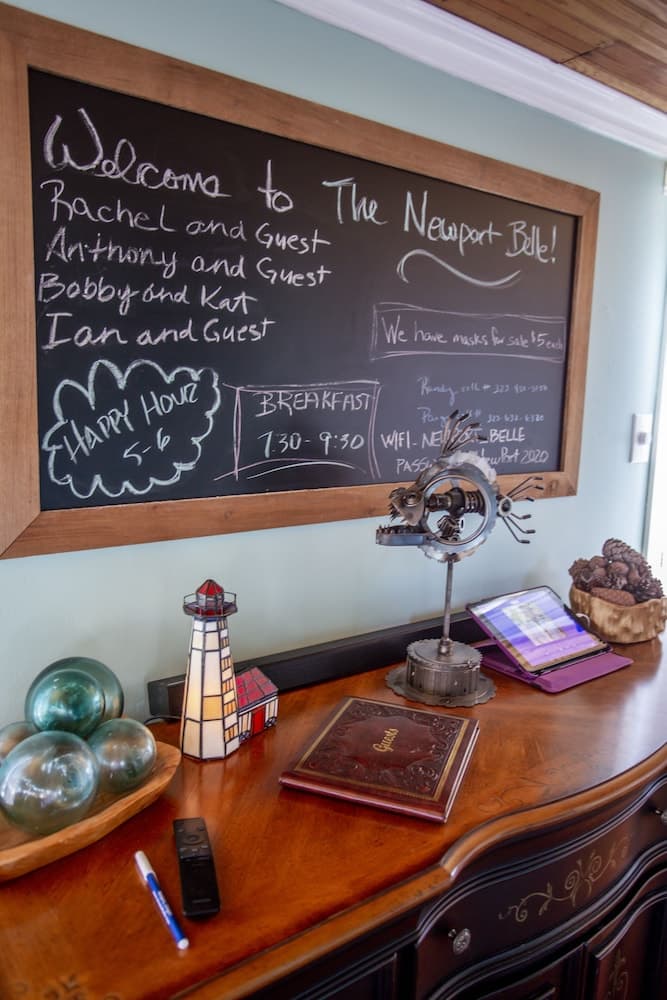 Welcome to The Newport Belle!
Rachel and Guest
Anthony and Guest
Bobby and Kat
Ian and Guest
We have masks for sale $5 each
HAPPY HOUR
5-6
BREAKFAST
7:30-9:30
cell #
WIFI - NEWPORT_BELLE
2020
Guests